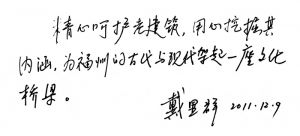 精心呵护老建筑，用心挖掘其
内涵，为福州的古代与现代架起一座文化
桥梁。
戴里祥 2011.12.9